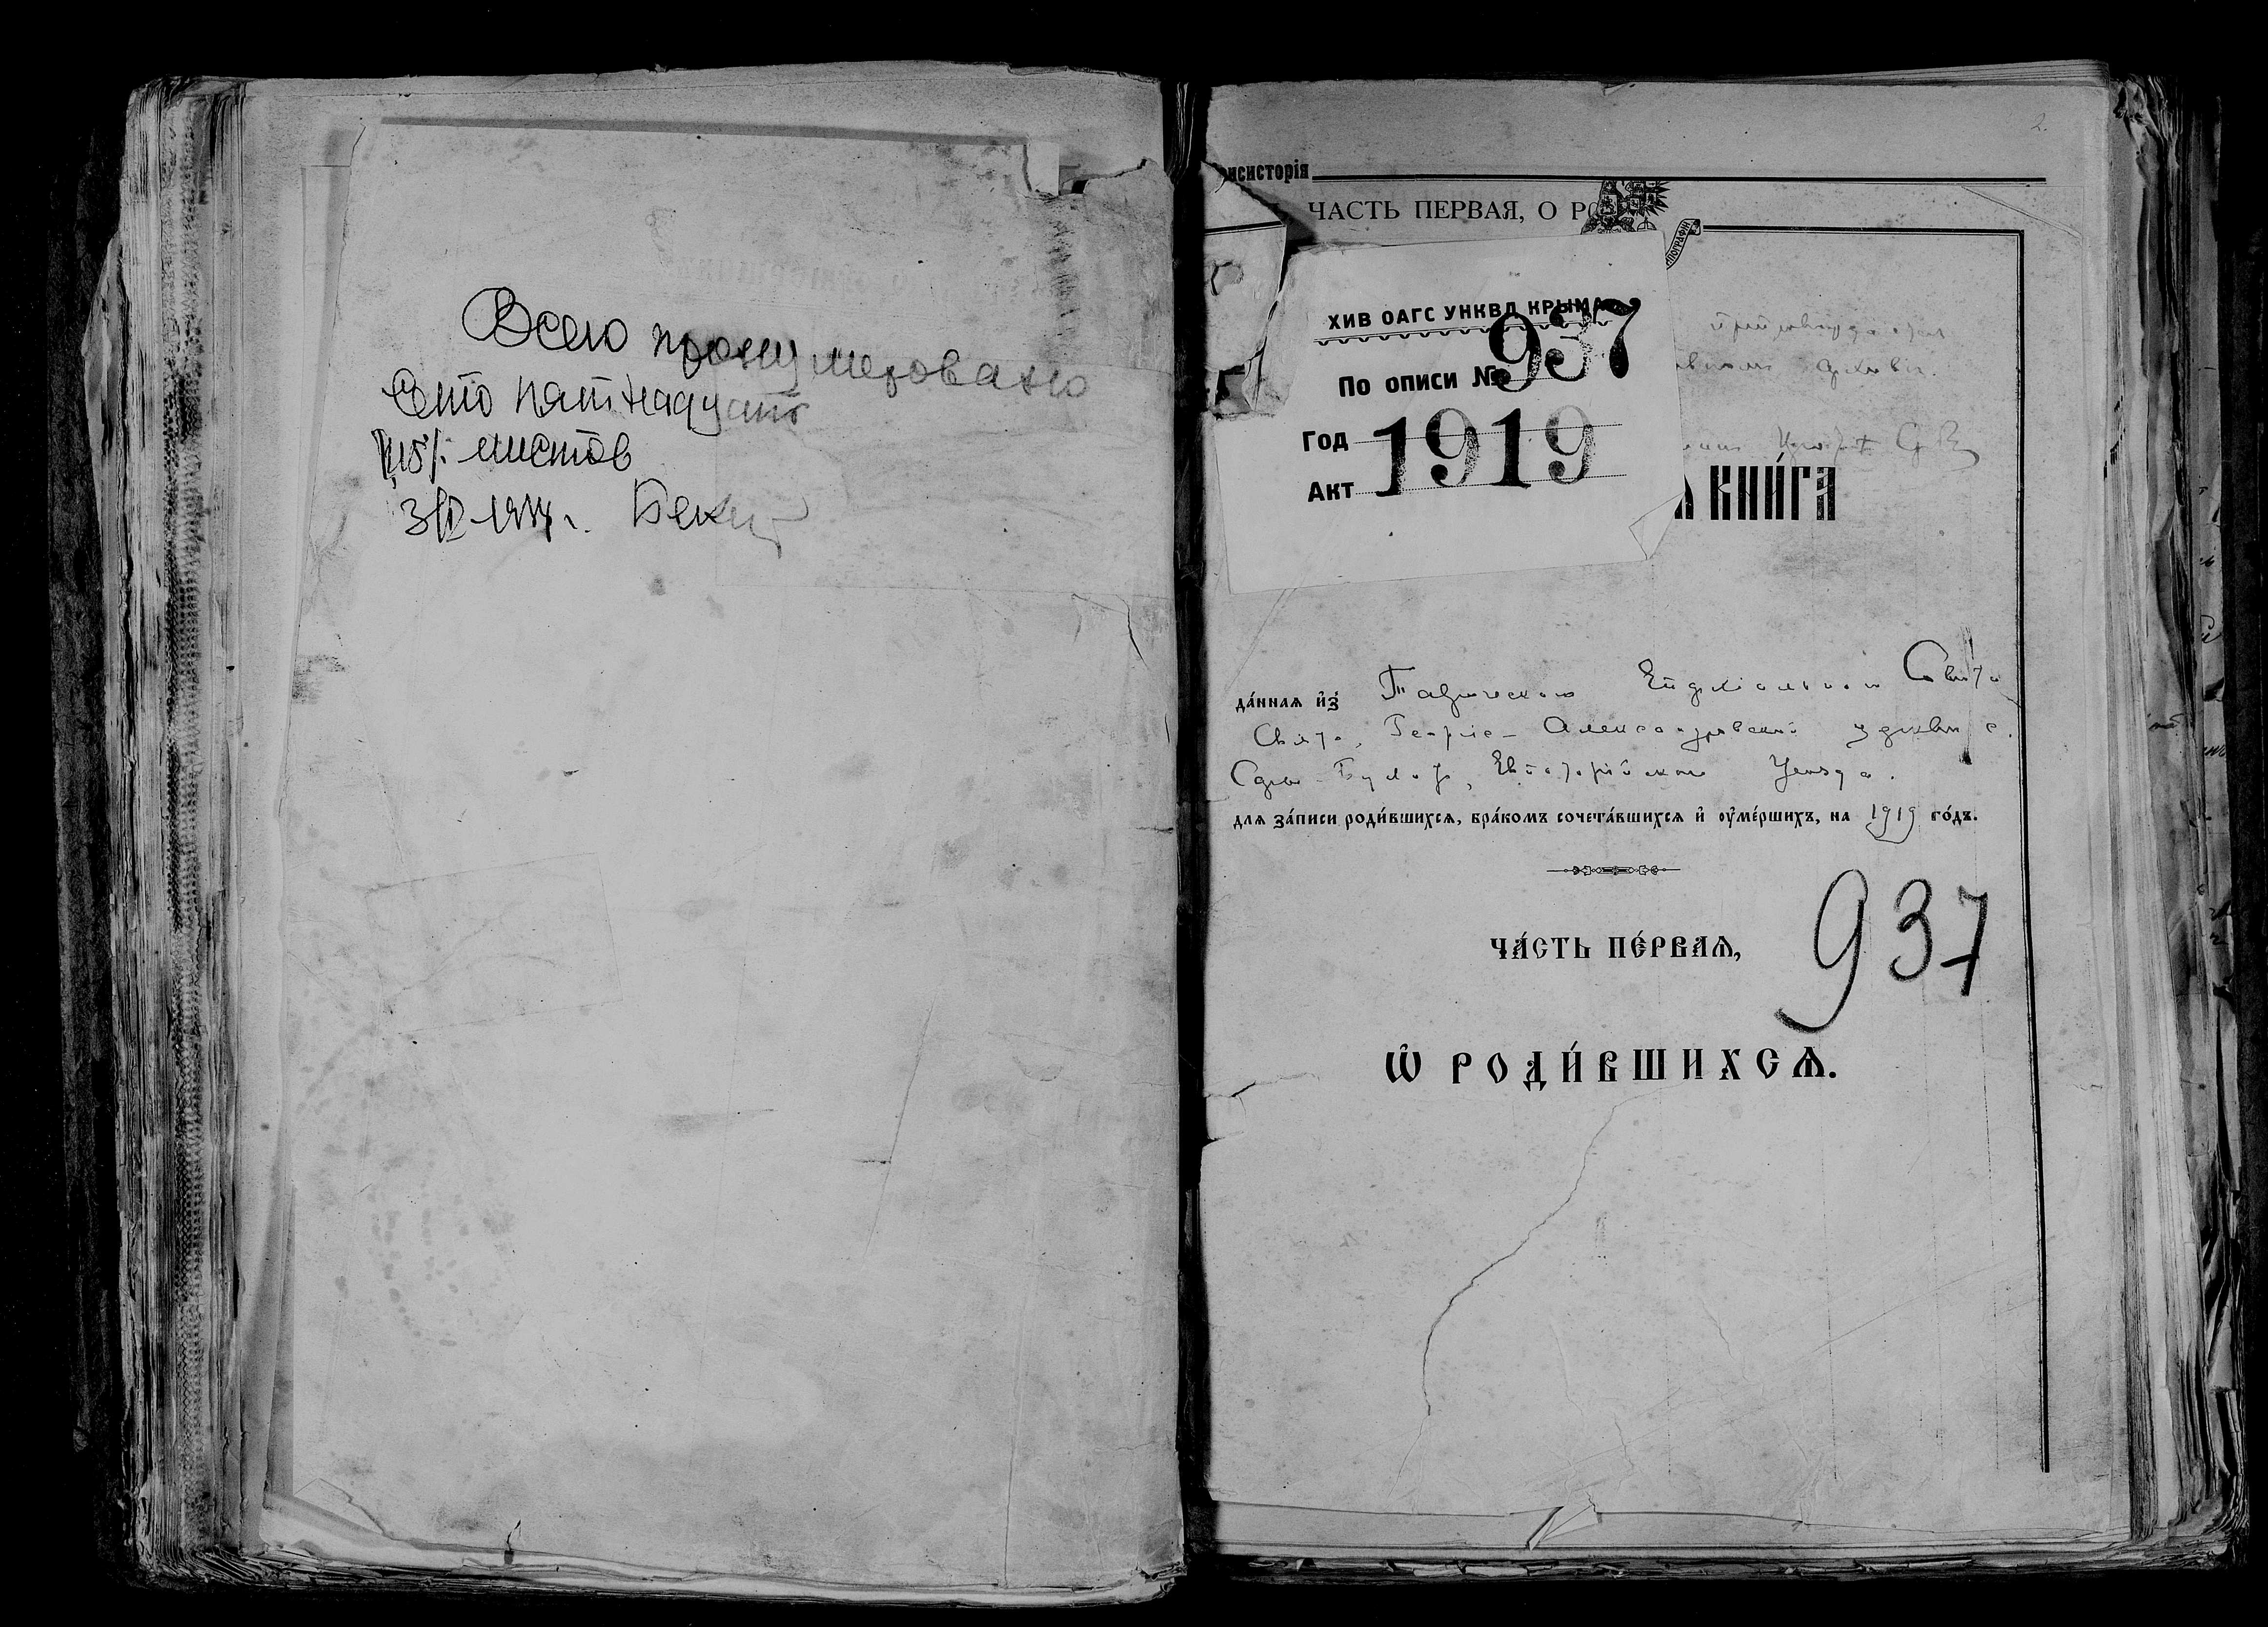 Всего пронумеровано
Сто пятнадцать
/115/. листов
Бекир
2.
нсисторія
ЧАСТЬ ПЕРВАЯ, О РО
ТИПОГРАФІИ
ХИВ ОАГС УНКВД КРЫМА
По описи № 937
Год 1919
Акт
КНИ́ГА
да́ннаѧ и҆з̾ Таврическаго Епархіальнаго Совѣта
Свято, Георгіе-Александровской церкви с.
Евпаторійскаго Уѣзда.
длѧ за́писи роди́вшихсѧ, бра́комъ сочета́вшихсѧ и҆ оу҆ме́ршихъ, на 1919 го́дъ.
ЧА́СТЬ ПЕ́РВАѦ,
937
Ѽ РОДИ́ВШИХСѦ.